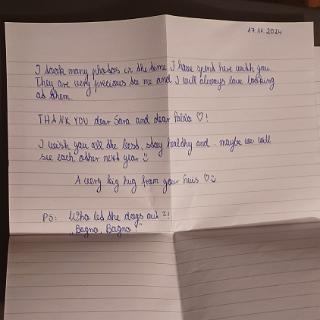 17.11.2024
I took many photos in the time I have spend here with you.
They are very precious to me and I will always love looking
at them.
THANK YOU dear Sara and dear Fabio ♡!
I wish you all the best, stay healthy and maybe we will
see each other next year ☺
A very big hug from your
PS: Who let the dogs out ?!
"Bagno, Bagno"